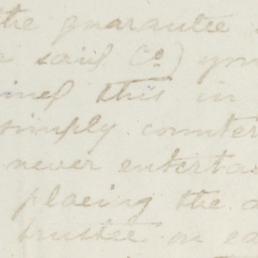 the guarantee
said Co) you
this in
simply counter
never enterta
placing the
trustee on ea